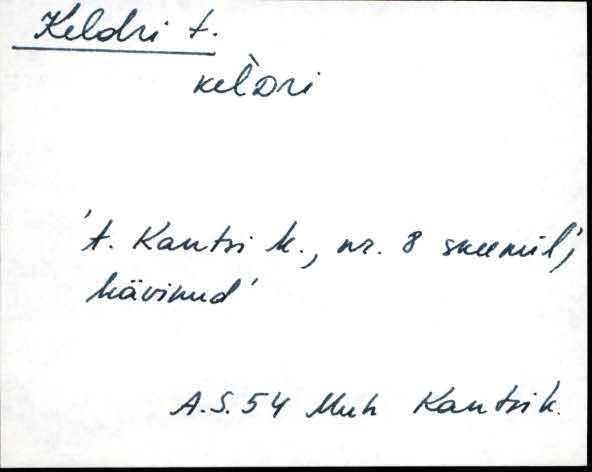 Keldri t.
kel̀Dri
't. Kantsi k., nr. 8 skeemil,
hävinud'
A.S. 54 Muh Kantsi k.